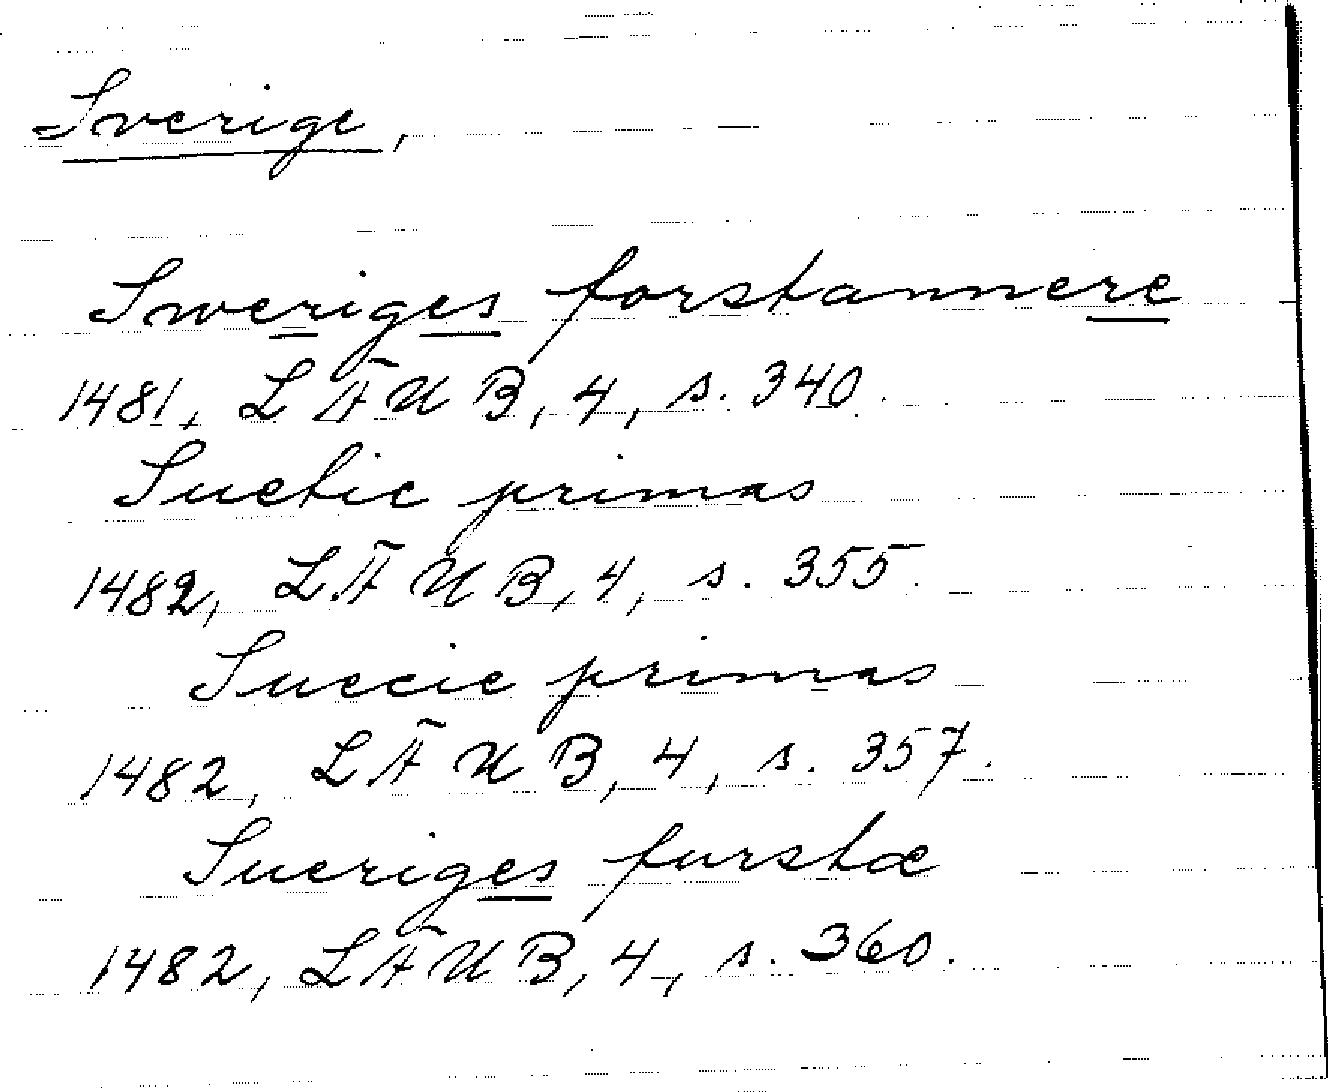 Sverige,
Sweriges forstannere
1481, LÄUB, 4, s. 340.
Suetie primas
1482, LÄUB, 4, s. 355.
Suecie primas
1482, LÄUB, 4, s. 357.
Sueriges furstæ
1482, LÄUB, 4, s. 360.